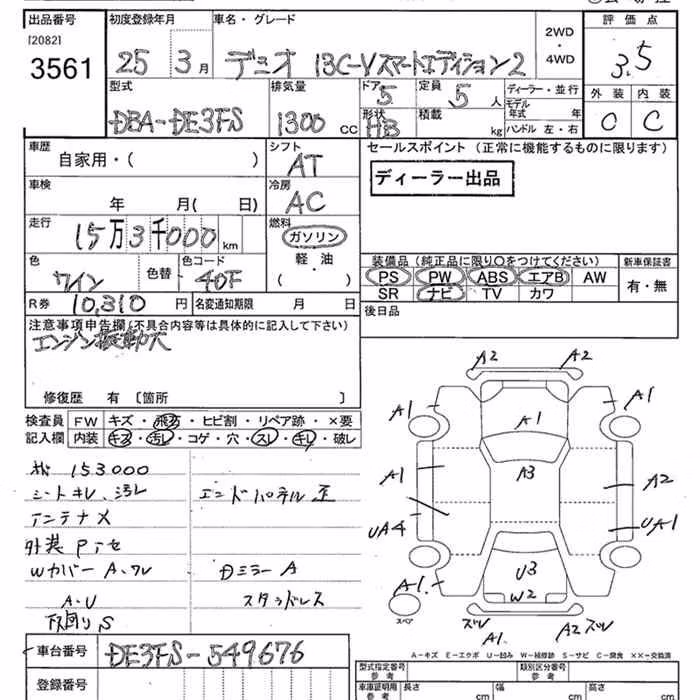 出品番号 初度登録年月 車名・グレード 2WD・4WD 評価点
[2082]
3561 25 3月 デミオ 13C-Vスマートエディション2 3.5
型式 排気量 ドア 定員 ディーラー・並行 外装 内装
DBA-DE3FS 1300 CC 5 5 人 モデル年式 年 C C
形状 積載
HB kg ハンドル 左・右
車歴 シフト セールスポイント (正常に機能するものに限ります)
自家用・( ) AT
ディーラー出品
車検 冷房
年 月( 日) AC
走行 燃料
15万3千000km ガソリン
軽・油
( )
色 色替 色コード
ワイン 40F
装備品 (純正品に限り○をつけてください) 新車保証書
PS PW ABS エアB AW 有・無
SR ナビ TV カワ
R券 10,310 円 名変通知期限 月 日
後日品
注意事項申告欄(不具合内容等は具体的に記入して下さい)
エンジン振動大
修復歴 有 〔箇所 〕
検査員記入欄 FW キズ・飛石・ヒビ割・リペア跡・×要
内装 キズ・汚レ・コゲ・穴・スレ・キレ・破レ
153000
シートキレ、汚レ エンドパネル歪
アンテナメ
外装Pアセ
Wカバー A、ワレ Dミラー A
A・U スタッドレス
下回りS
A2 A2
A1 A1 A1
A1 A3 A2
UA4 UA1
U3
A1 W2
スペア
ズレ A1 A2ズレ
A-キズ E-エクボ U-凹ミ W-補修跡 S-サビ C-腐食 ××-交換済
車台番号 DE3FS-549676
型式指定番号 参考 類別区分番号 参考
登録番号 車庫証明用参考 長さ cm 幅 cm 高さ cm